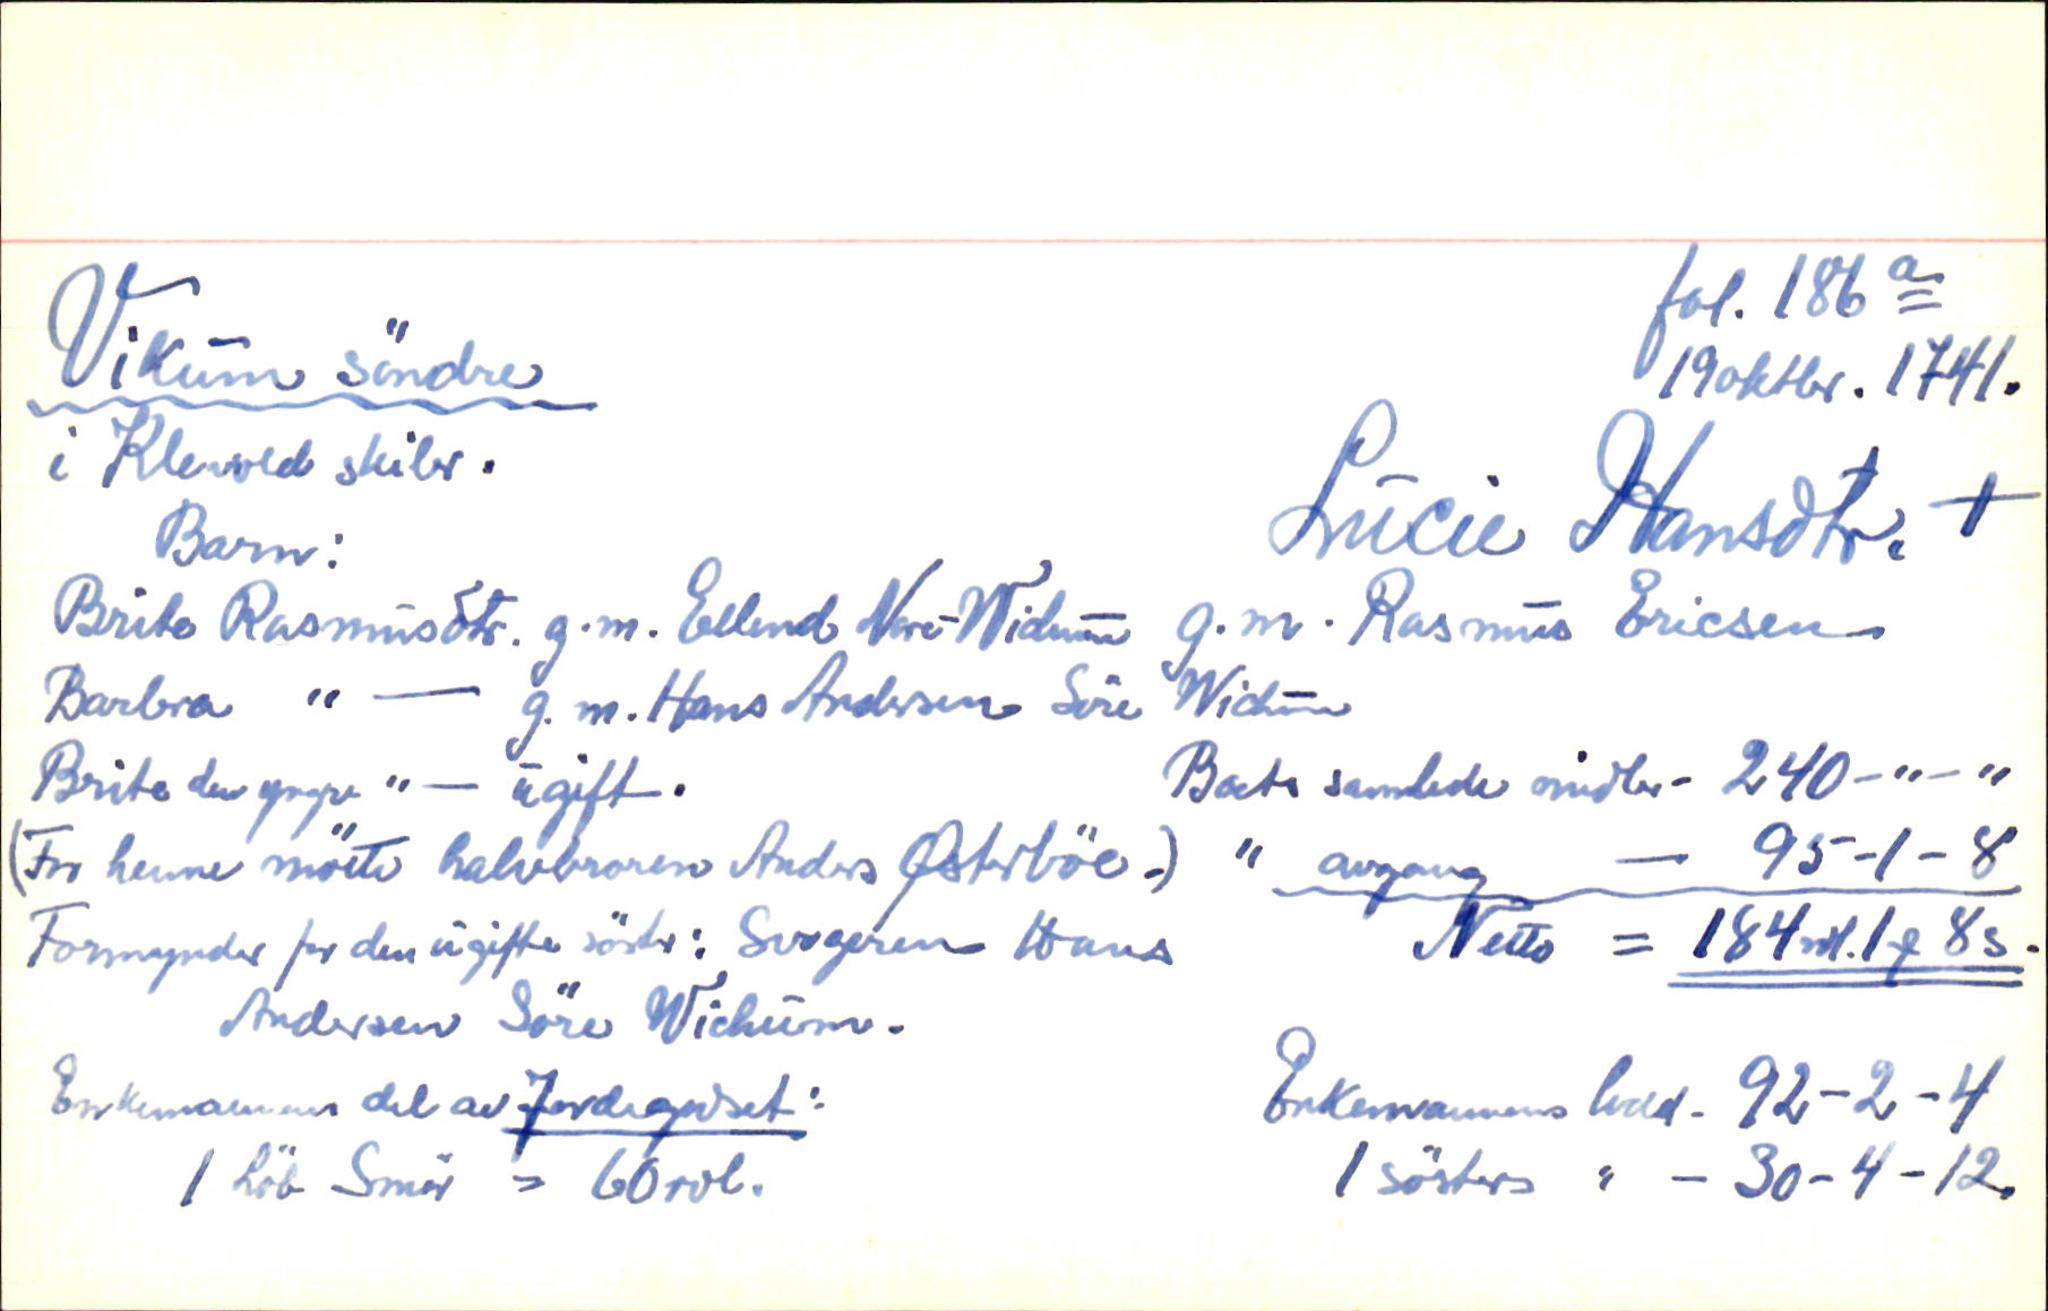 fol. 186 a
Vikum söndre
19 oktbr. 1741.
i Klewold skibr.
Lucie Hansdtr. +
Barn:
Brite Rasmusdtr. g.m. Ellend Nere-Wichum g.m. Rasmus Ericsen
Barbra " — g.m. Hans Andersen Söre Wichum
Brite den yngre " — ugift. Boets samlede midler - 240 - " - "
(For henne mötte halvbroren Anders Østerböe.) " avgang — 95-1-8
Formynder for den ugifte söster: Svogeren Hans Netto = 184 rdl. 1 ꝑ 8 s.
Andersen Söre Wichum.
Enkemannens del av Jordegodset: Enkemannens lodd - 92-2-4
1 löb Smör = 60 rdl. 1 sösters " - 30-4-12.